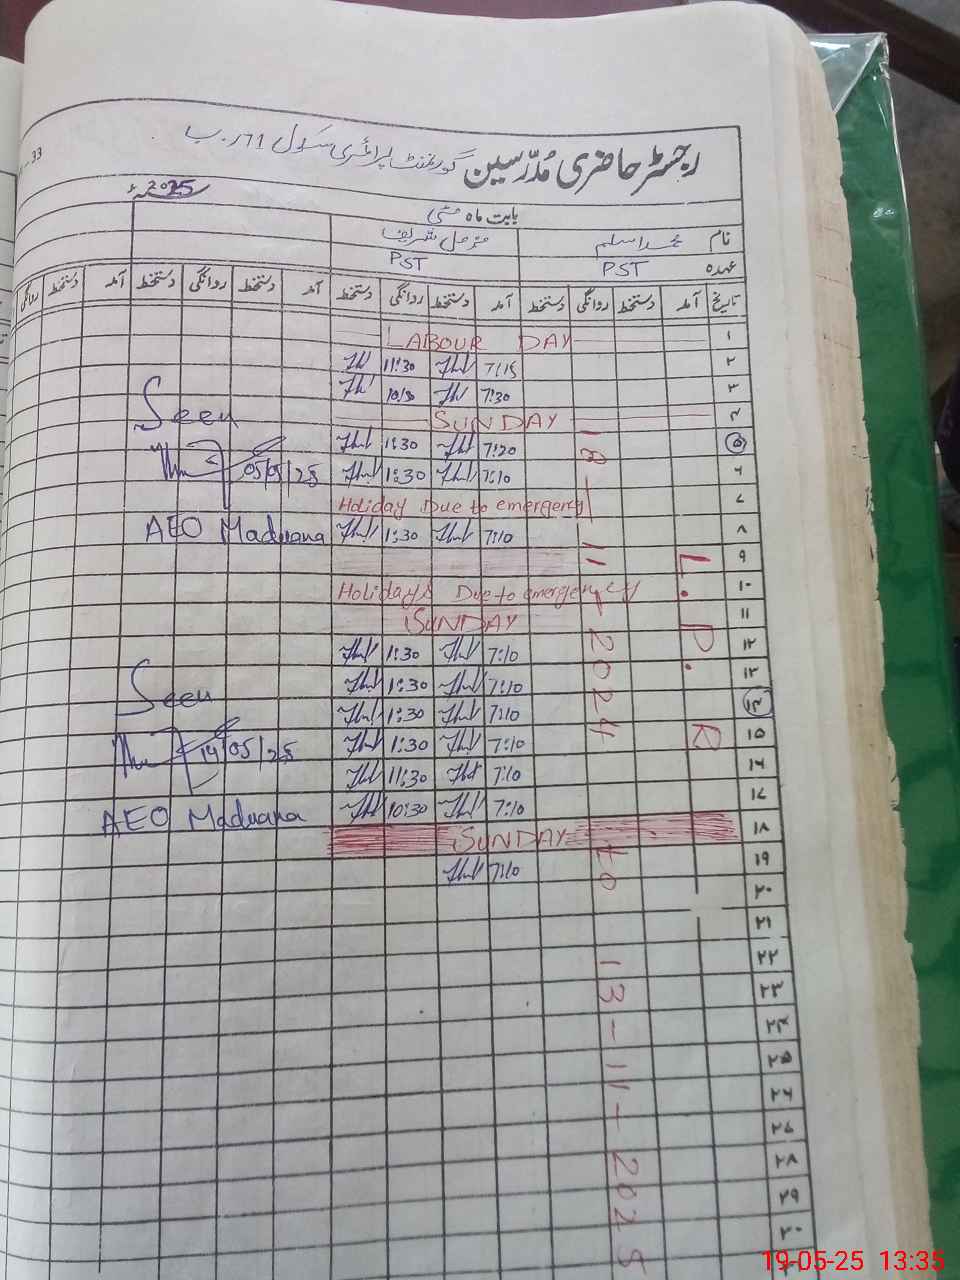 33
رجسٹر حاضری مُدرّسین گورنمنٹ پرائمری سکول 71 ر۔ب
2025ء
بابت ماہ مئی
نام محمد اسلم مزمل شریف
عہدہ PST PST
تاریخ آمد دستخط روانگی دستخط آمد دستخط روانگی دستخط آمد دستخط روانگی دستخط آمد دستخط روانگی
۱ LABOUR DAY
۲ 7:15 11:30
۳ 7:30 10/30
۴ SUNDAY
Seen
۵ 7:20 1:30
05/05/25
۶ 7:10 1:30
۷ Holiday Due to emergency
AEO Maduana
۸ 7:10 1:30
۹
۱۰ Holidays Due to emergency
۱۱ SUNDAY
۱۲ 7:10 1:30
۱۳ 7:10 1:30
Seen
۱۴ 7:10 1:30
۱۵ 7:10 1:30
14/05/25
۱۶ 7:10 11:30
۱۷ 7:10 10:30
AEO Maduana
۱۸ SUNDAY
۱۹ 7:10
۲۰
۲۱
۲۲
۲۳
۲۴
۲۵
۲۶
۲۷
۲۸
۲۹
۳۰
L.P.R
18-11-2024 to 13-11-2025
19-05-25 13:35